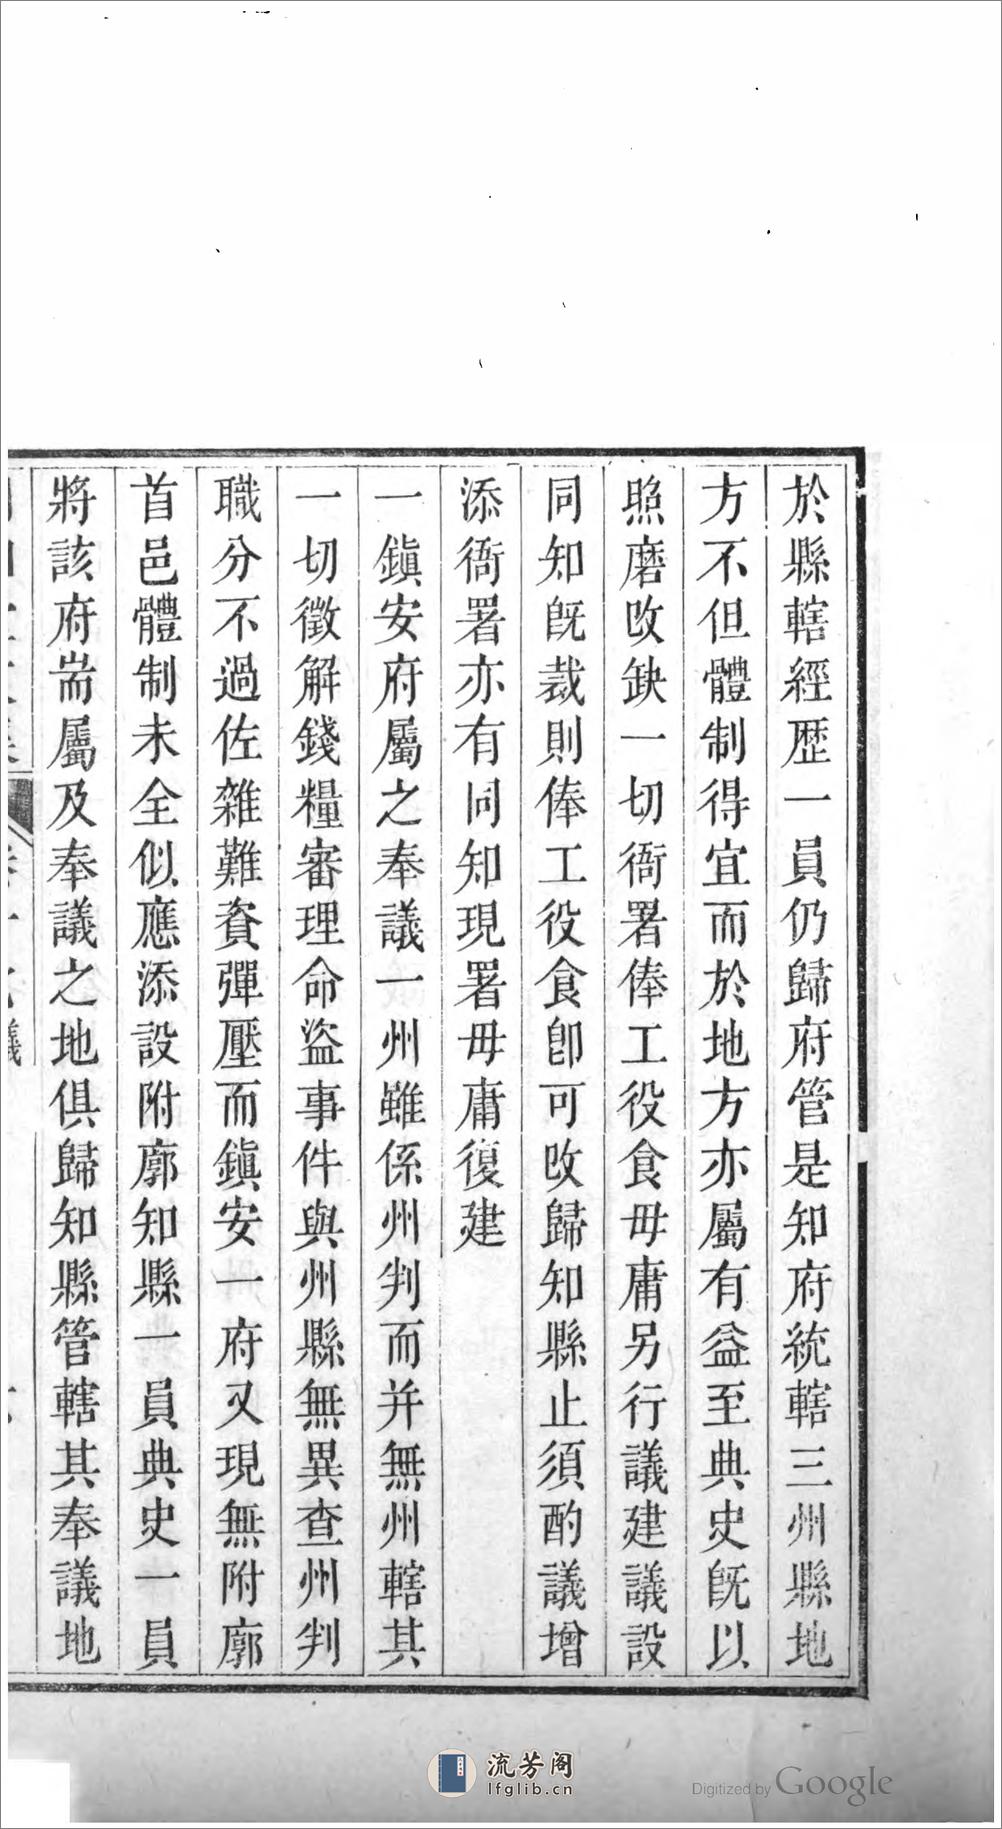 於縣轄經歷一員仍歸府管是知府統轄三州縣地
方不但體制得宜而於地方亦屬有益至典史旣以
照磨改缺一切衙署俸工役食毋庸另行議建議設
同知旣裁則俸工役食卽可改歸知縣止須酌議增
添衙署亦有同知現署毋庸復建
一鎭安府屬之奉議一州雖係州判而并無州轄其
一切徵解錢糧審理命盜事件與州縣無異查州判
職分不過佐雜難資彈壓而鎭安一府又現無附廓
首邑體制未全似應添設附廓知縣一員典史一員
將該府耑屬及奉議之地俱歸知縣管轄其奉議地
議
流芳阁
lfglib.cn
Digitized by Google